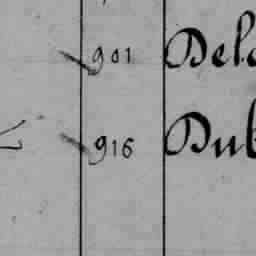 901 Dela
916 Dub